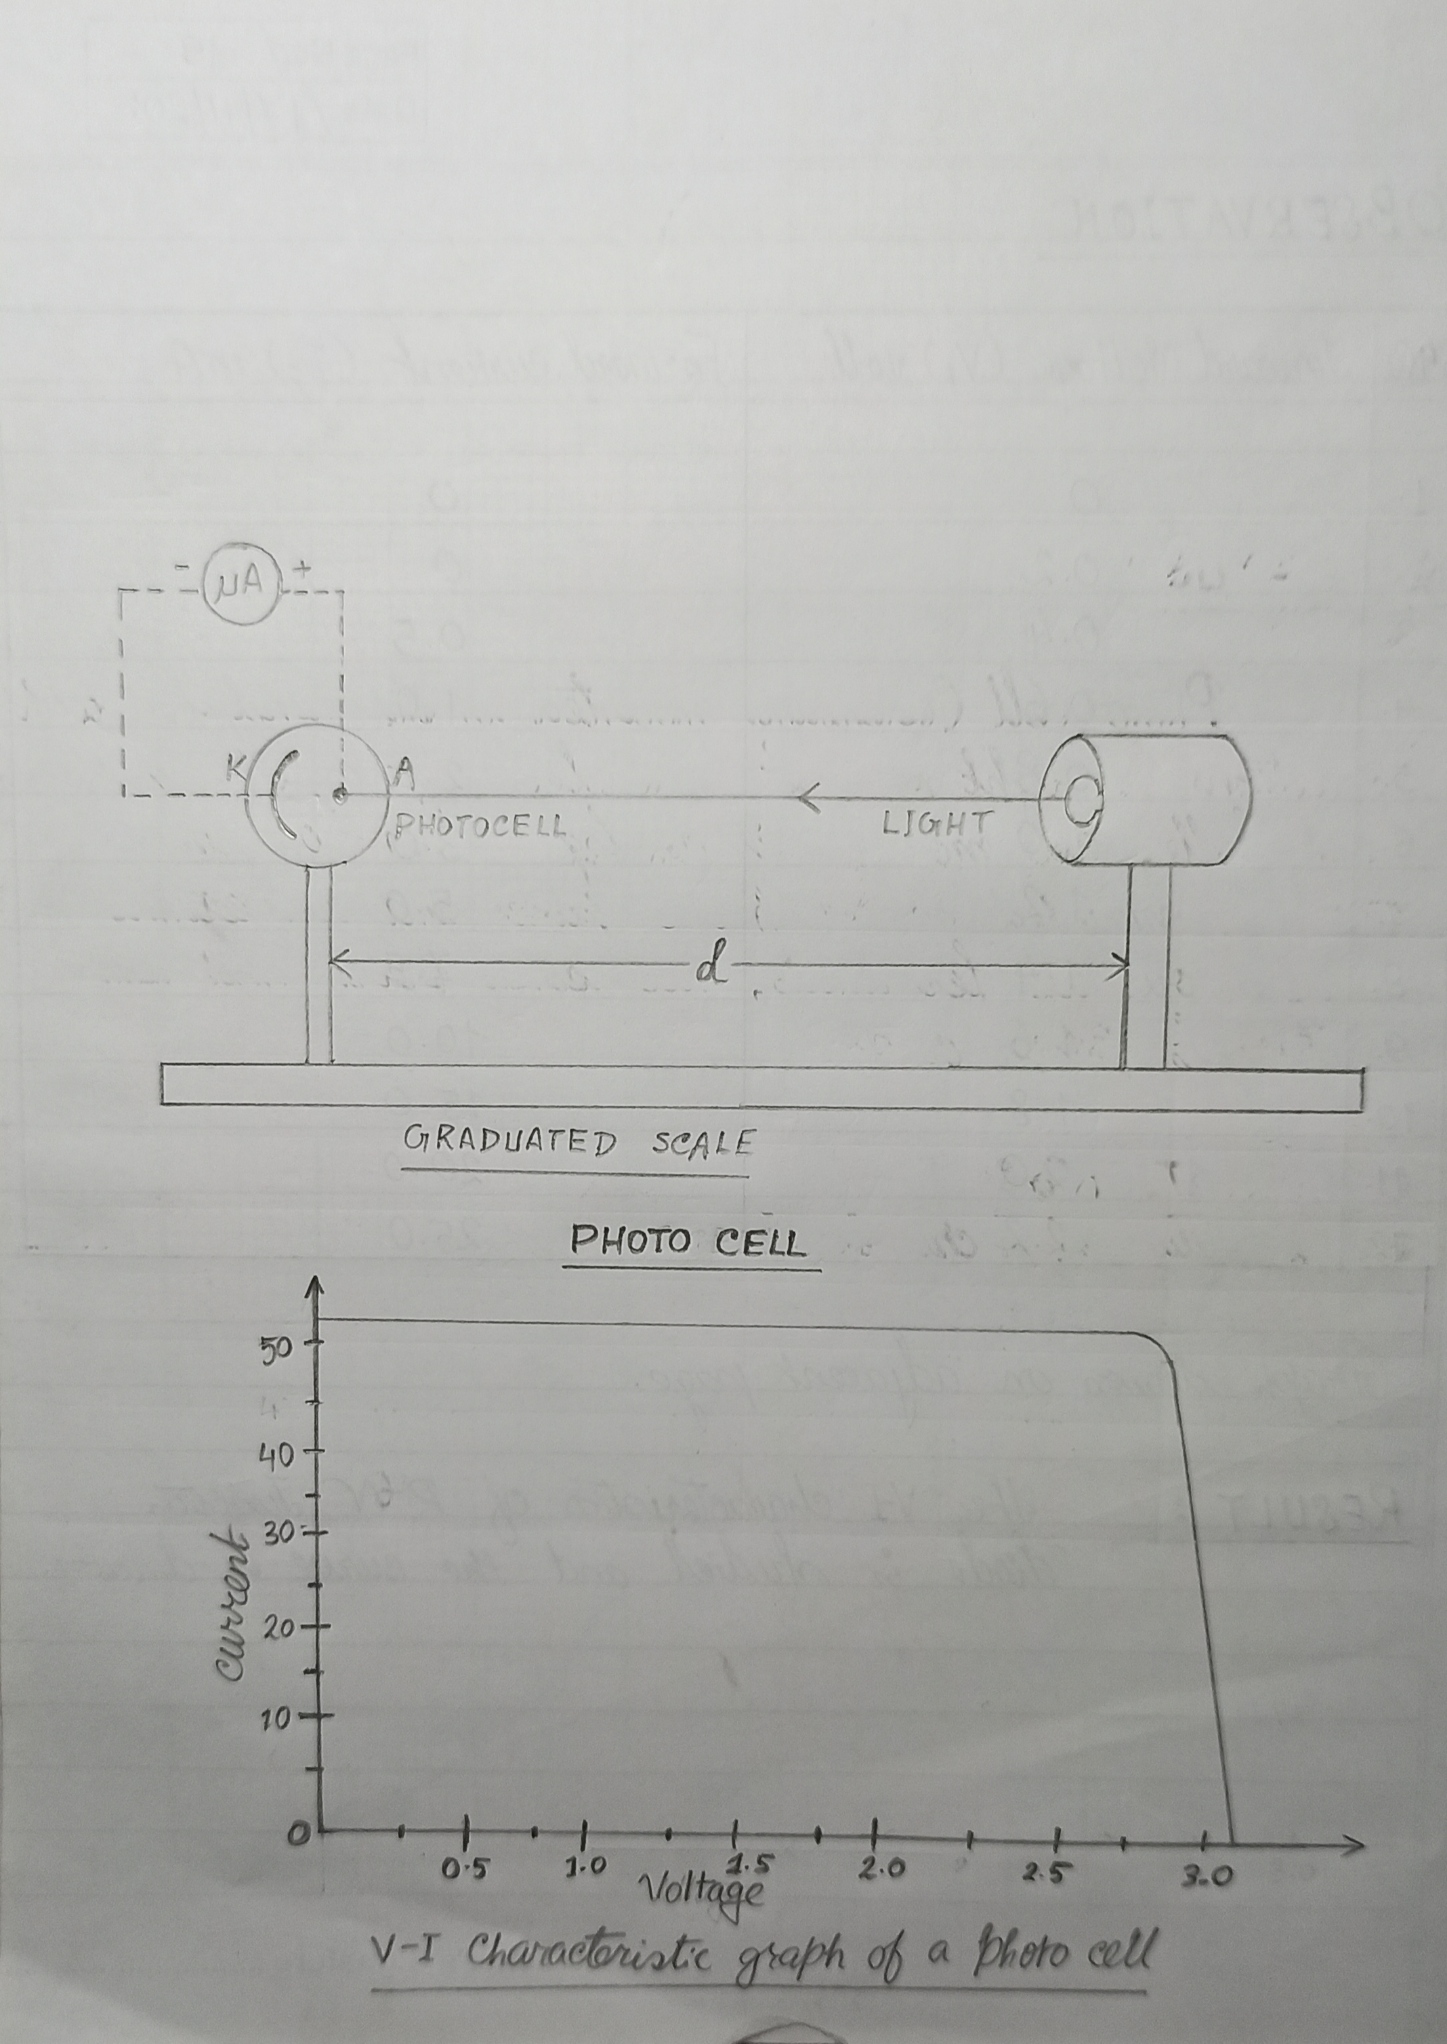 - μA +
K A
PHOTOCELL LIGHT
d
GRADUATED SCALE
PHOTO CELL
50
40
30
20
10
0
current
0.5 1.0 1.5 2.0 2.5 3.0
Voltage
V-I Characteristic graph of a photo cell
OBSERVATION
RESULT